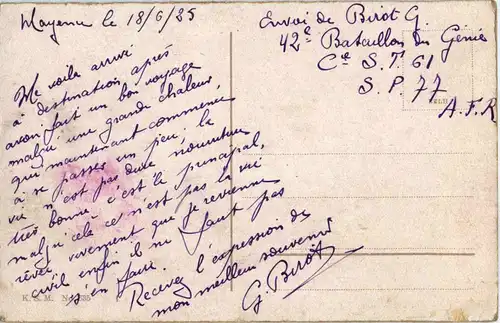 Mayence le 18/6/25
Me voila arrivé
à destination, après
avoir fait un bon voyage
malgré une grande chaleur
qui maintenant commence
à se passer un peu, la
vie n'est pas dure nourriture
très bonne c'est le principal,
malgré cela ce n'est pas la vie
rêvée, vivement que je revienne
civil enfin il ne faut pas
s'en faire.
Recevez l'expression de
mon meilleur souvenir
G. Birot
Envoi de Birot G.
42e Bataillon du Génie
Cie S.T. 61
S.P. 77
A.F.R
K. & M.